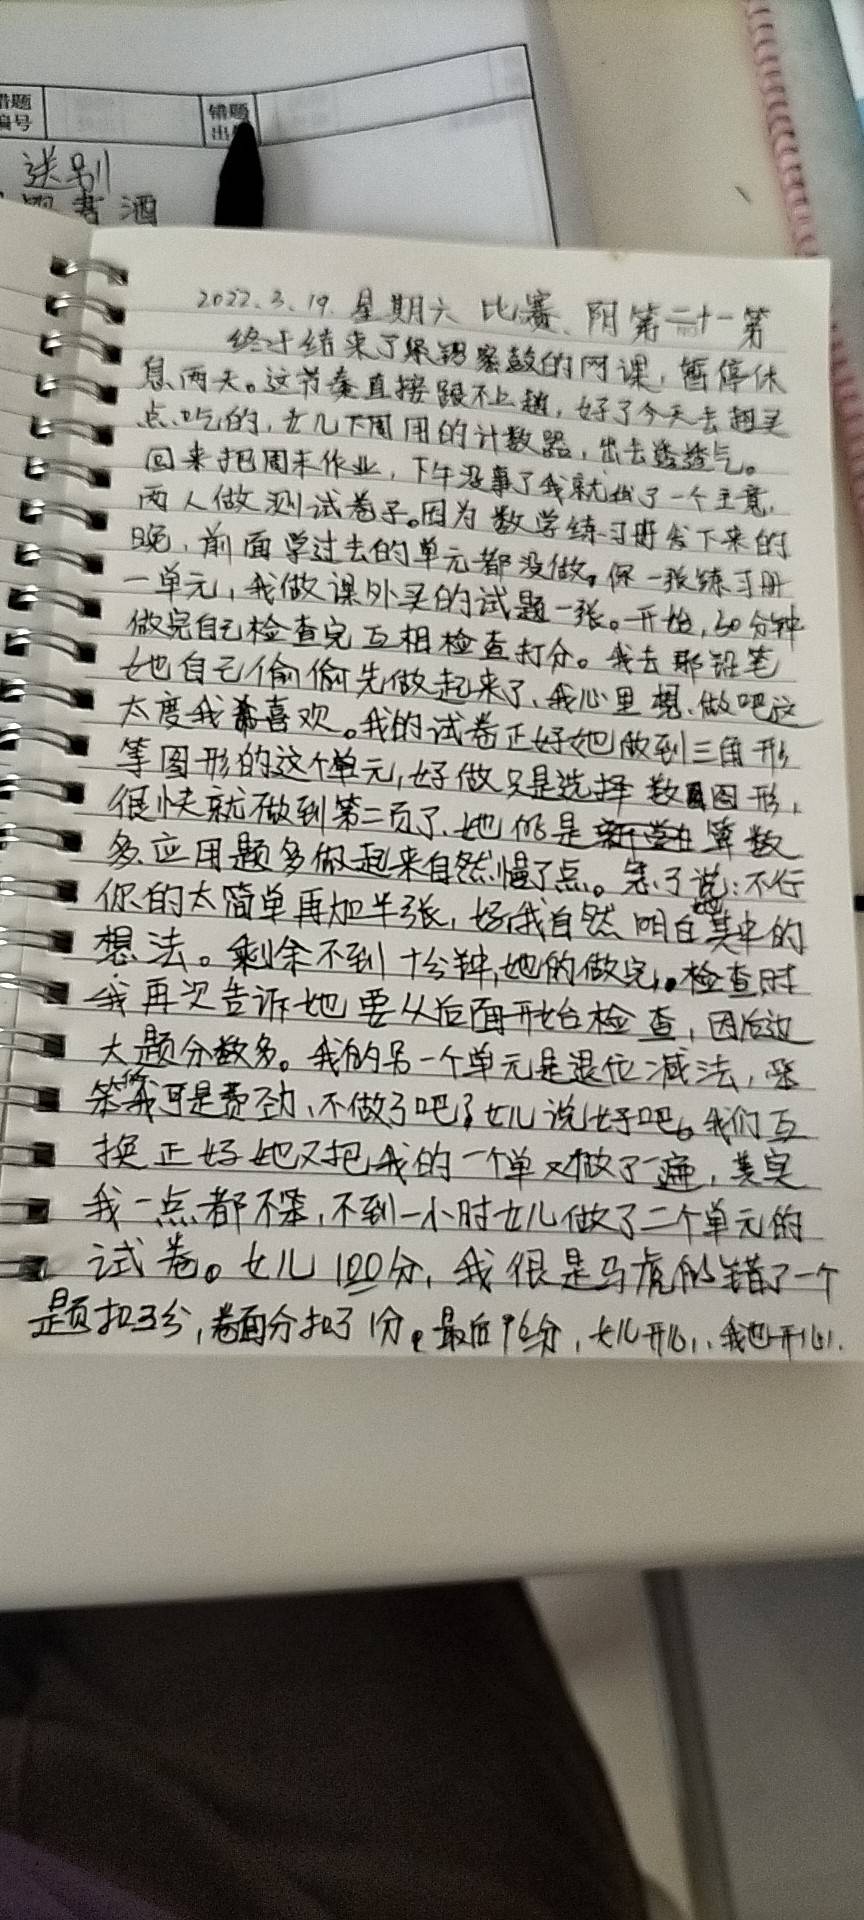 错题
编号
错题
送别
酒
2022.3.19. 星期六 比赛、阴 第二十一第
终于结束了紧锣密鼓的网课，暂停休
息两天。这节奏直接跟不上趟，好了今天去超买
点吃的，女儿下周用的计数器，出去透透气。
回来把周末作业，下午没事了我就找了一个主意，
两人做测试卷子。因为数学练习册发下来的
晚，前面学过去的单元都没做。你一张练习册
一单元，我做课外买的试题一张。一开始，30分钟
做完自己检查完互相检查打分。我去那铅笔
她自己偷偷先做起来了、我心里想、做吧这
太度我喜欢。我的试卷正好她做到三角形
等图形的这个单元，好做只是选择数图形，
很快就做到第二页了、她的是算数
多、应用题多做起来自然慢了点。急了说：不行
你的太简单再加半张，好我自然明白其中的
想法。剩余不到十分钟，她的做完，。检查时
我再次告诉她要从后面开始检查，因后边
大题分数多。我的另一个单元是退位减法，笨
笨的我可是费劲、不做了吧？女儿说好吧。我们互
换正好她又把我的一个单又做了一遍，其实
我一点都不笨，不到一小时女儿做了二个单元的
试卷。女儿100分，我很是马虎的错了一个
题扣3分，卷面分扣了1分。最后96分，女儿开心，我也开心.